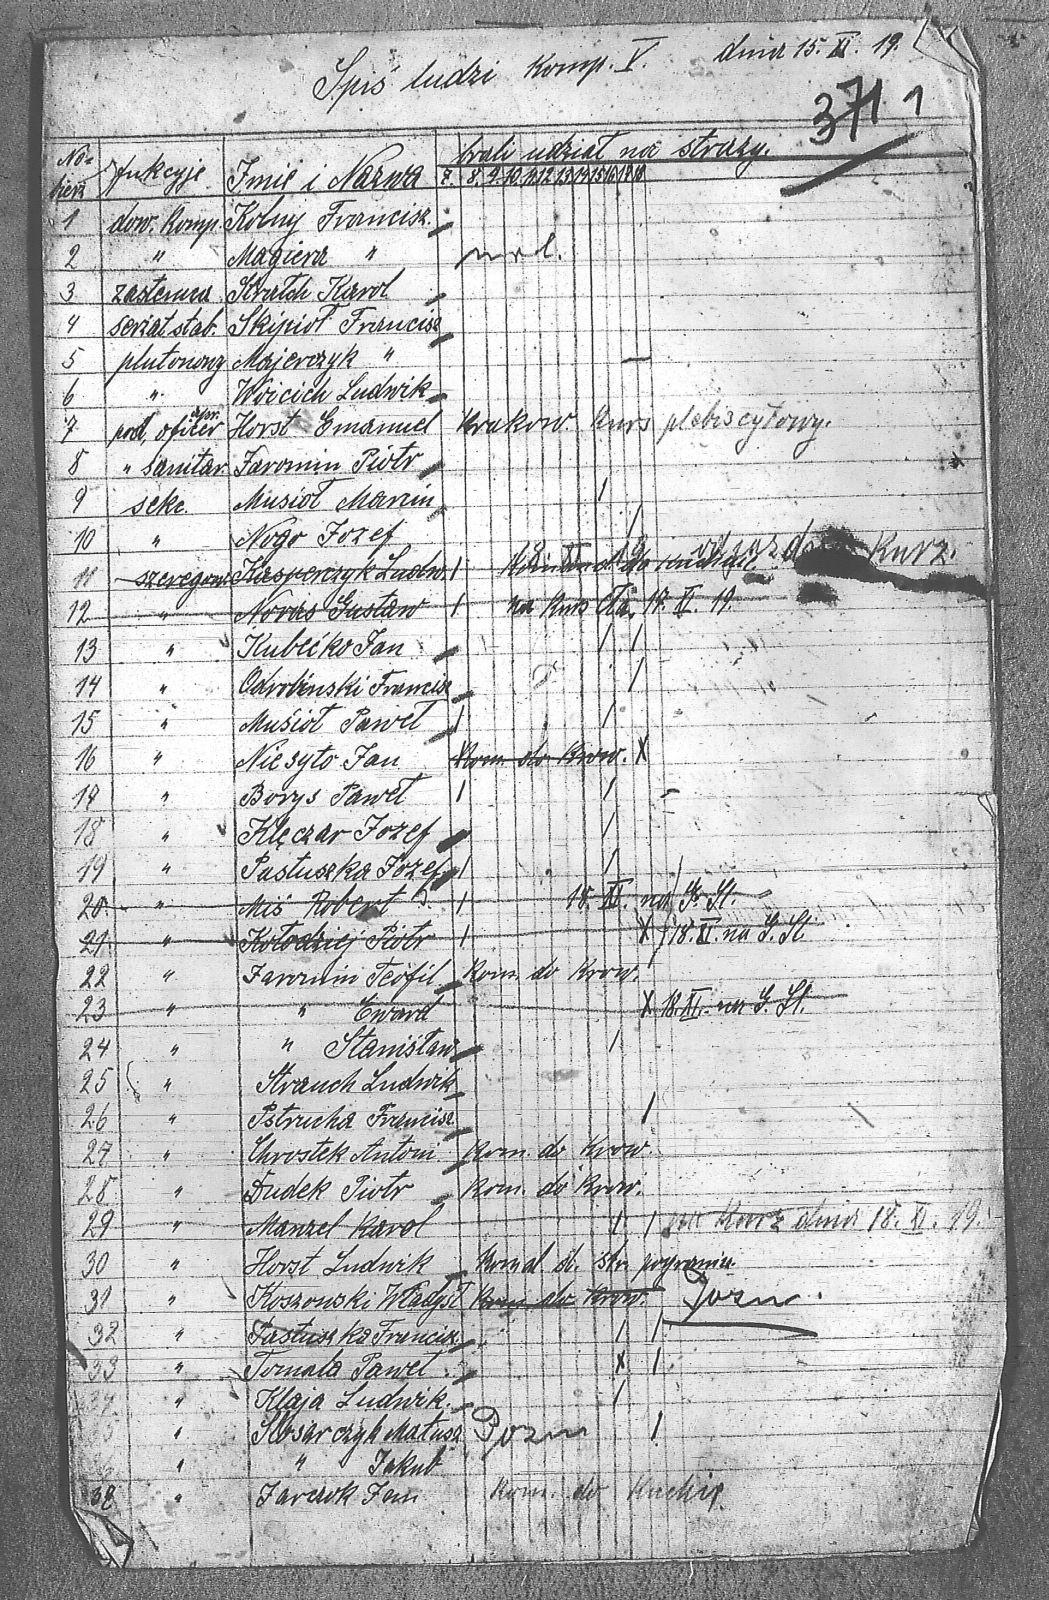 Spis ludzi Komp. V. dnia 15. XI. 19.
371 1
No- fukcyje Imie i Nazwa brali udział na straży.
7. 8. 9. 10. 11. 12 13 14 15 16 17 18
1 dow. Komp. Kolny Francisz.
2 " Magiera " url.
3 zastempca Stratch Karol
4 serzat stab. Skipioł Francisz
5 plutonowy Majerczyk "
6 " Woicich Ludwik
7 pod. oficer Horst Emanuel Krakow Kurs plebiscytowy.
8 " sanitar Jaromin Piotr
9 sekc. Musioł Marcin
10 " Nogo Jozef
11 szeregow Kasperczyk Ludw. odjazd Kurz.
12 " Novas Gustaw na Kurs 17. XI. 19.
13 " Kubećko Jan
14 " Odrobinski Francisz
15 " Musioł Paweł
16 " Niesyto Jan Kom. do Krow. X
17 " Borys Paweł
18 " Klęczar Jozef
19 " Pastuszka Jozef
20 " Miś Robert 18. XI. na G. Śl.
21 " Kołodziej Piotr X 18. XI. na G. Śl.
22 " Jaromin Teofil Kom. do Krow.
23 " " Eward X 18. XI. na G. Śl.
24 " " Stanisław
25 " Strauch Ludwik
26 " Pstrucha Francisz
27 " Chrostek Antoni Kom. do Krow.
28 " Dudek Piotr Kom. do Krow.
29 " Manzel Karol na Kurz dnia 18. XI. 19.
30 " Horst Ludwik
31 " Koszonski Władysł Kom. do Krow. Pozn.
32 " Pastuszka Francisz
33 " Tomala Paweł X
" Klaja Ludwik
" Slosarczyk Matusz Pozn
" " Jakub
38 " Jarczok Jan Kom. do Kuchię.